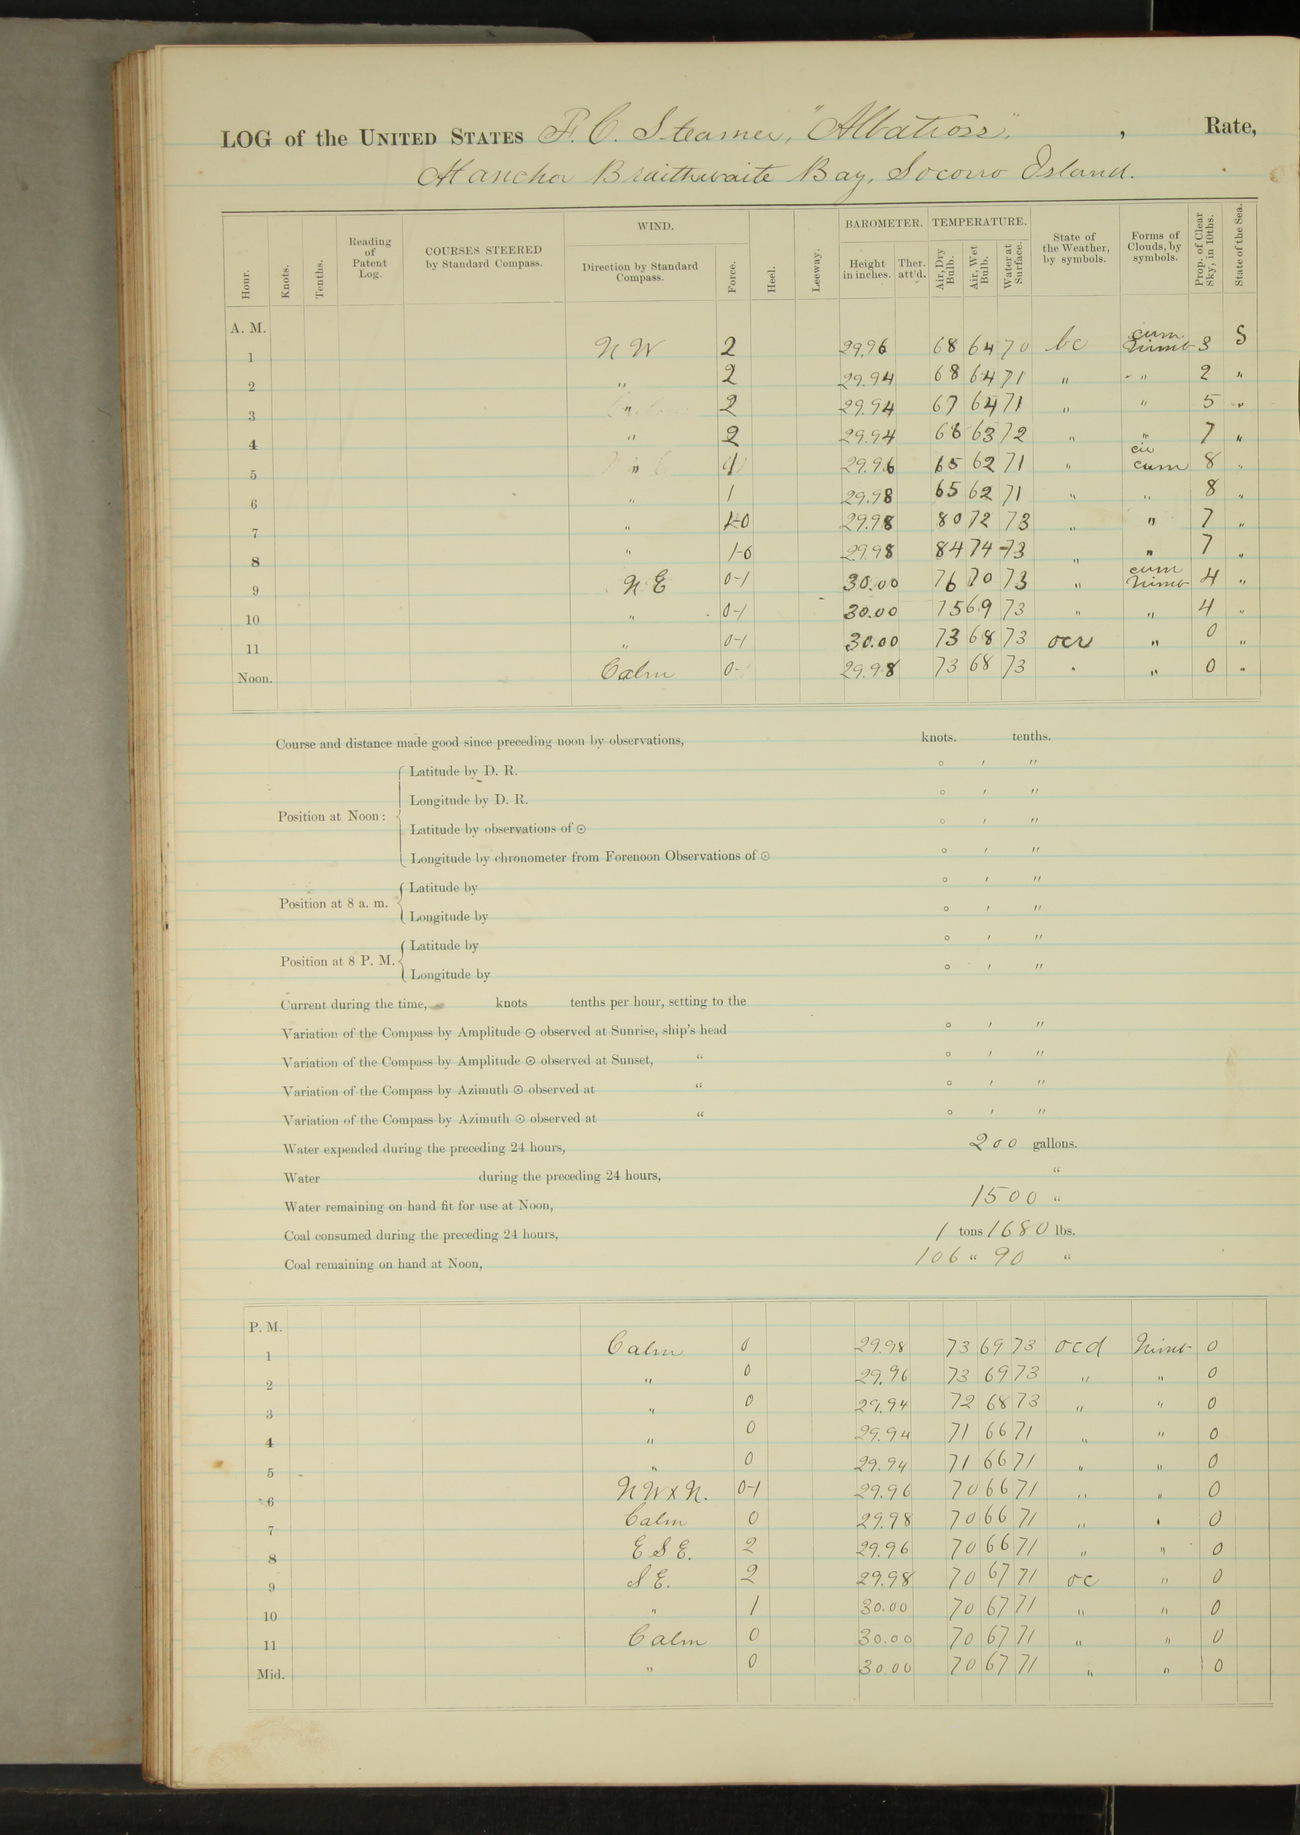 LOG of the UNITED STATES F. C. Steamer, "Albatross". , Rate,
At anchor Braithwaite Bay, Socorro Island.
Hour. Knots. Tenths. Reading of Patent Log. COURSES STEERED by Standard Compass. WIND. Direction by Standard Compass. Force. Heel. Leeway. BAROMETER. Height in inches. Ther. att'd. TEMPERATURE. Air, Dry Bulb. Air, Wet Bulb. Water at Surface. State of the Weather, by symbols. Forms of Clouds, by symbols. Prop. of Clear Sky, in 10ths. State of the Sea.
A. M.
1 N W 2 29.96 68 64 70 bc cum nimb 3 S
2 " 2 29.94 68 64 71 " " 2 "
3 " 2 29.94 67 64 71 " " 5 "
4 " 2 29.94 68 63 72 " " 7 "
5 " 1 29.96 65 62 71 " cir cum 8 "
6 " 1 29.98 65 62 71 " " 8 "
7 " 1-0 29.98 80 72 73 " " 7 "
8 " 1-0 29.98 84 74 73 " " 7 "
9 N E 0-1 30.00 76 70 73 " cum nimb 4 "
10 " 0-1 30.00 75 69 73 " " 4 "
11 " 0-1 30.00 73 68 73 ocr " 0 "
Noon. Calm 0- 29.98 73 68 73 " " 0 "
Course and distance made good since preceding noon by observations, knots. tenths.
Position at Noon: Latitude by D. R. ° ′ ″
Longitude by D. R. ° ′ ″
Latitude by observations of ☉ ° ′ ″
Longitude by chronometer from Forenoon Observations of ☉ ° ′ ″
Position at 8 a. m. Latitude by ° ′ ″
Longitude by ° ′ ″
Position at 8 P. M. Latitude by ° ′ ″
Longitude by ° ′ ″
Current during the time, knots tenths per hour, setting to the
Variation of the Compass by Amplitude ☉ observed at Sunrise, ship's head ° ′ ″
Variation of the Compass by Amplitude ☉ observed at Sunset, " ° ′ ″
Variation of the Compass by Azimuth ☉ observed at " ° ′ ″
Variation of the Compass by Azimuth ☉ observed at " ° ′ ″
Water expended during the preceding 24 hours, 200 gallons.
Water during the preceding 24 hours, "
Water remaining on hand fit for use at Noon, 1500 "
Coal consumed during the preceding 24 hours, 1 tons 1680 lbs.
Coal remaining on hand at Noon, 106 " 90 "
P. M.
1 Calm 0 29.98 73 69 73 ocd Nimb 0
2 " 0 29.96 73 69 73 " " 0
3 " 0 29.94 72 68 73 " " 0
4 " 0 29.94 71 66 71 " " 0
5 " 0 29.94 71 66 71 " " 0
6 N W x N. 0-1 29.96 70 66 71 " " 0
7 Calm 0 29.98 70 66 71 " " 0
8 E S E. 2 29.96 70 66 71 " " 0
9 S E. 2 29.98 70 67 71 oc " 0
10 " 1 30.00 70 67 71 " " 0
11 Calm 0 30.00 70 67 71 " " 0
Mid. " 0 30.00 70 67 71 " " 0